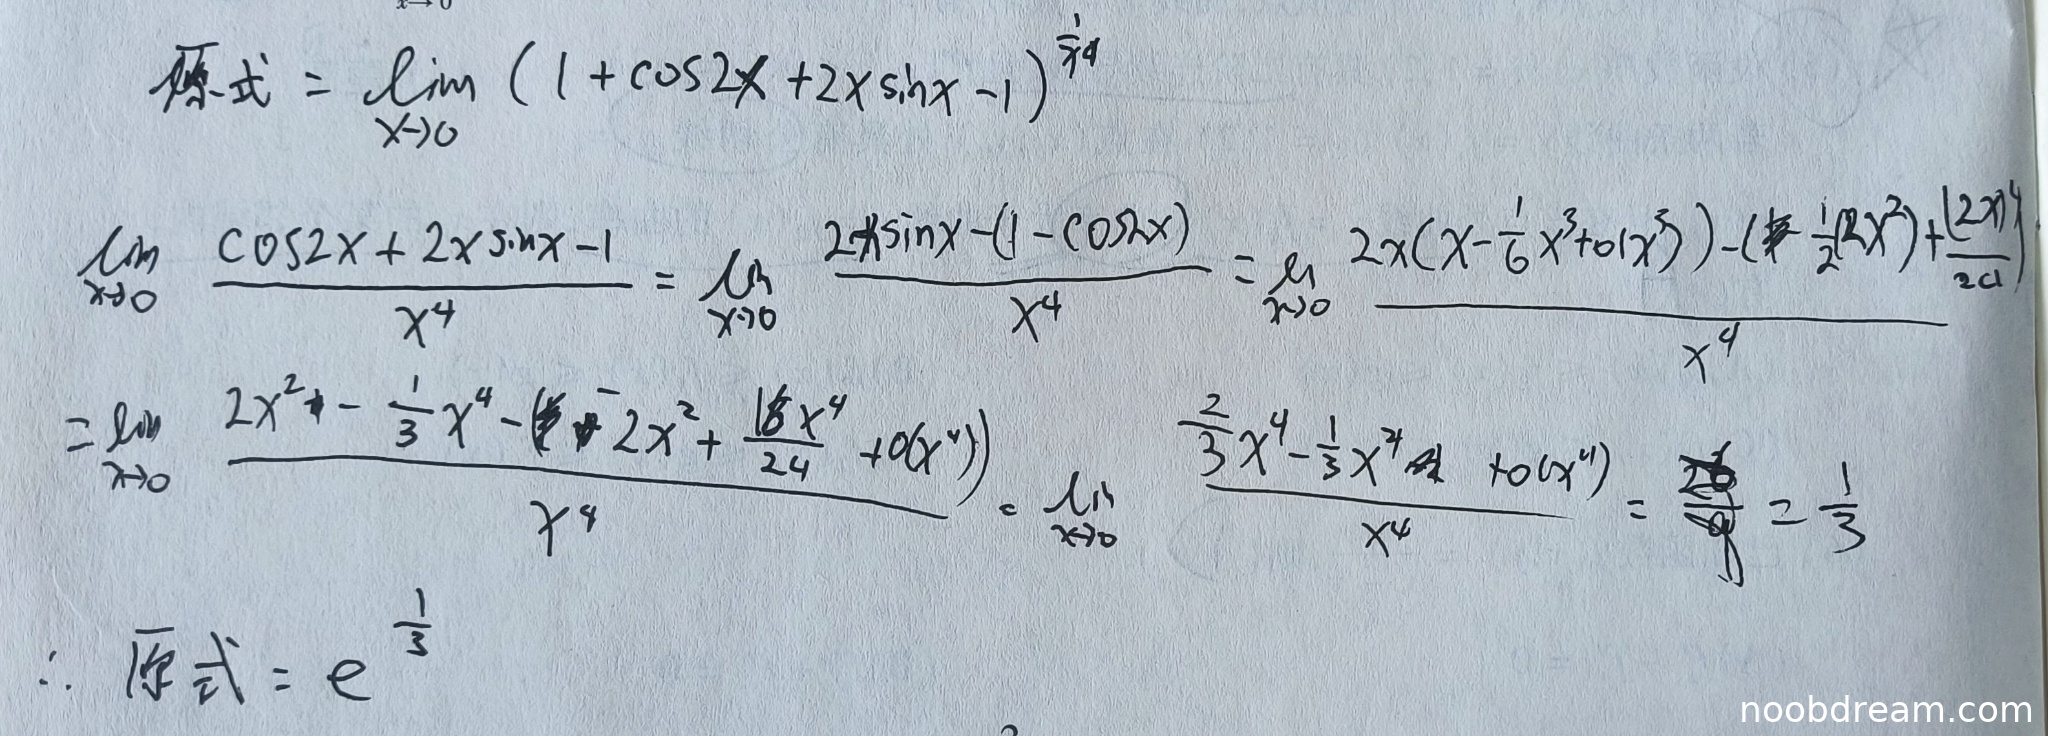 x→0
原式 = lim x→0 (1 + cos2x + 2x sinx - 1)^(1/x^4)
lim x→0 (cos2x + 2x sinx - 1)/x^4 = lim x→0 (2x sinx - (1 - cos2x))/x^4 = lim x→0 (2x(x - 1/6 x^3 + o(x^3)) - (-1/2(2x^2) + (2x)^4/24))/x^4
= lim x→0 (2x^2 - 1/3 x^4 - (-2x^2 + 16x^4/24 + o(x^4)))/x^4 = lim x→0 (2/3 x^4 - 1/3 x^4 + o(x^4))/x^4 = = 1/3
∴ 原式 = e^(1/3)
noobdream.com